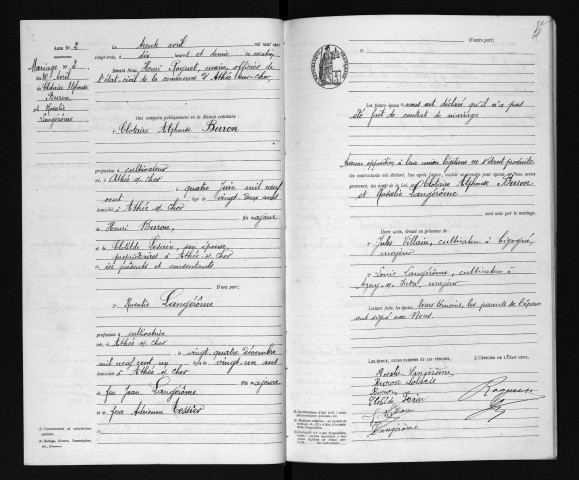 Acte N° 2
Mariage N° 2
du
30 Avril
de
Clotaire Alphonse
Buron
et
Rosalie
Langérôme
Le trente avril mil neuf cent
vingt-trois, à dix heures et demie du matin
devant Nous, Henri Roguet, maire, officier de
l'état-civil de la commune d'Athée-sur-Cher,
Ont comparu publiquement en la Maison commune :
Clotaire Alphonse Buron
profession d cultivateur
né, à Athée s/ Cher
le quatre Juin mil neuf
cent âgé de vingt-deux ans
domicilié à Athée s/ Cher
fils majeur
de Henri Buron,
et de Clotilde Lorain, son épouse,
propriétaires à Athée s/ Cher
ici présents et consentants
D'une part ;
Et Rosalie Langérôme
profession d cultivatrice
née, à Athée s/ Cher
le vingt-quatre décembre
mil neuf cent un âgée de vingt-un ans
domiciliée à Athée s/ Cher
fille majeure
de feu Jean Langérôme
et de feue Adrienne Tessier
D'autre part ;
Les futurs époux nous ont déclaré qu'il n'a pas
été fait de contrat de mariage
Aucune opposition à leur union légitime ne s'étant produite
les contractants ont déclaré, l'un après l'autre, vouloir se prendre pour époux et Nous avons
prononcé, au nom de la Loi, que Clotaire Alphonse Buron
et Rosalie Langérôme
sont unis par le mariage.
Dont acte, dressé en présence de :
Jules Villain, cultivateur à Bigogné,
majeur
Louis Langérôme, cultivateur à
Azay-s-Cher, majeur
Lecture faite, les époux, leurs témoins, les parents de l'époux
ont signé avec Nous.
LES ÉPOUX, LEURS PARENTS ET LES TÉMOINS,
L'OFFICIER DE L'ÉTAT CIVIL,
Rosalie Langérôme
Buron Clotaire
Buron
Clotilde Lorain
Langérôme